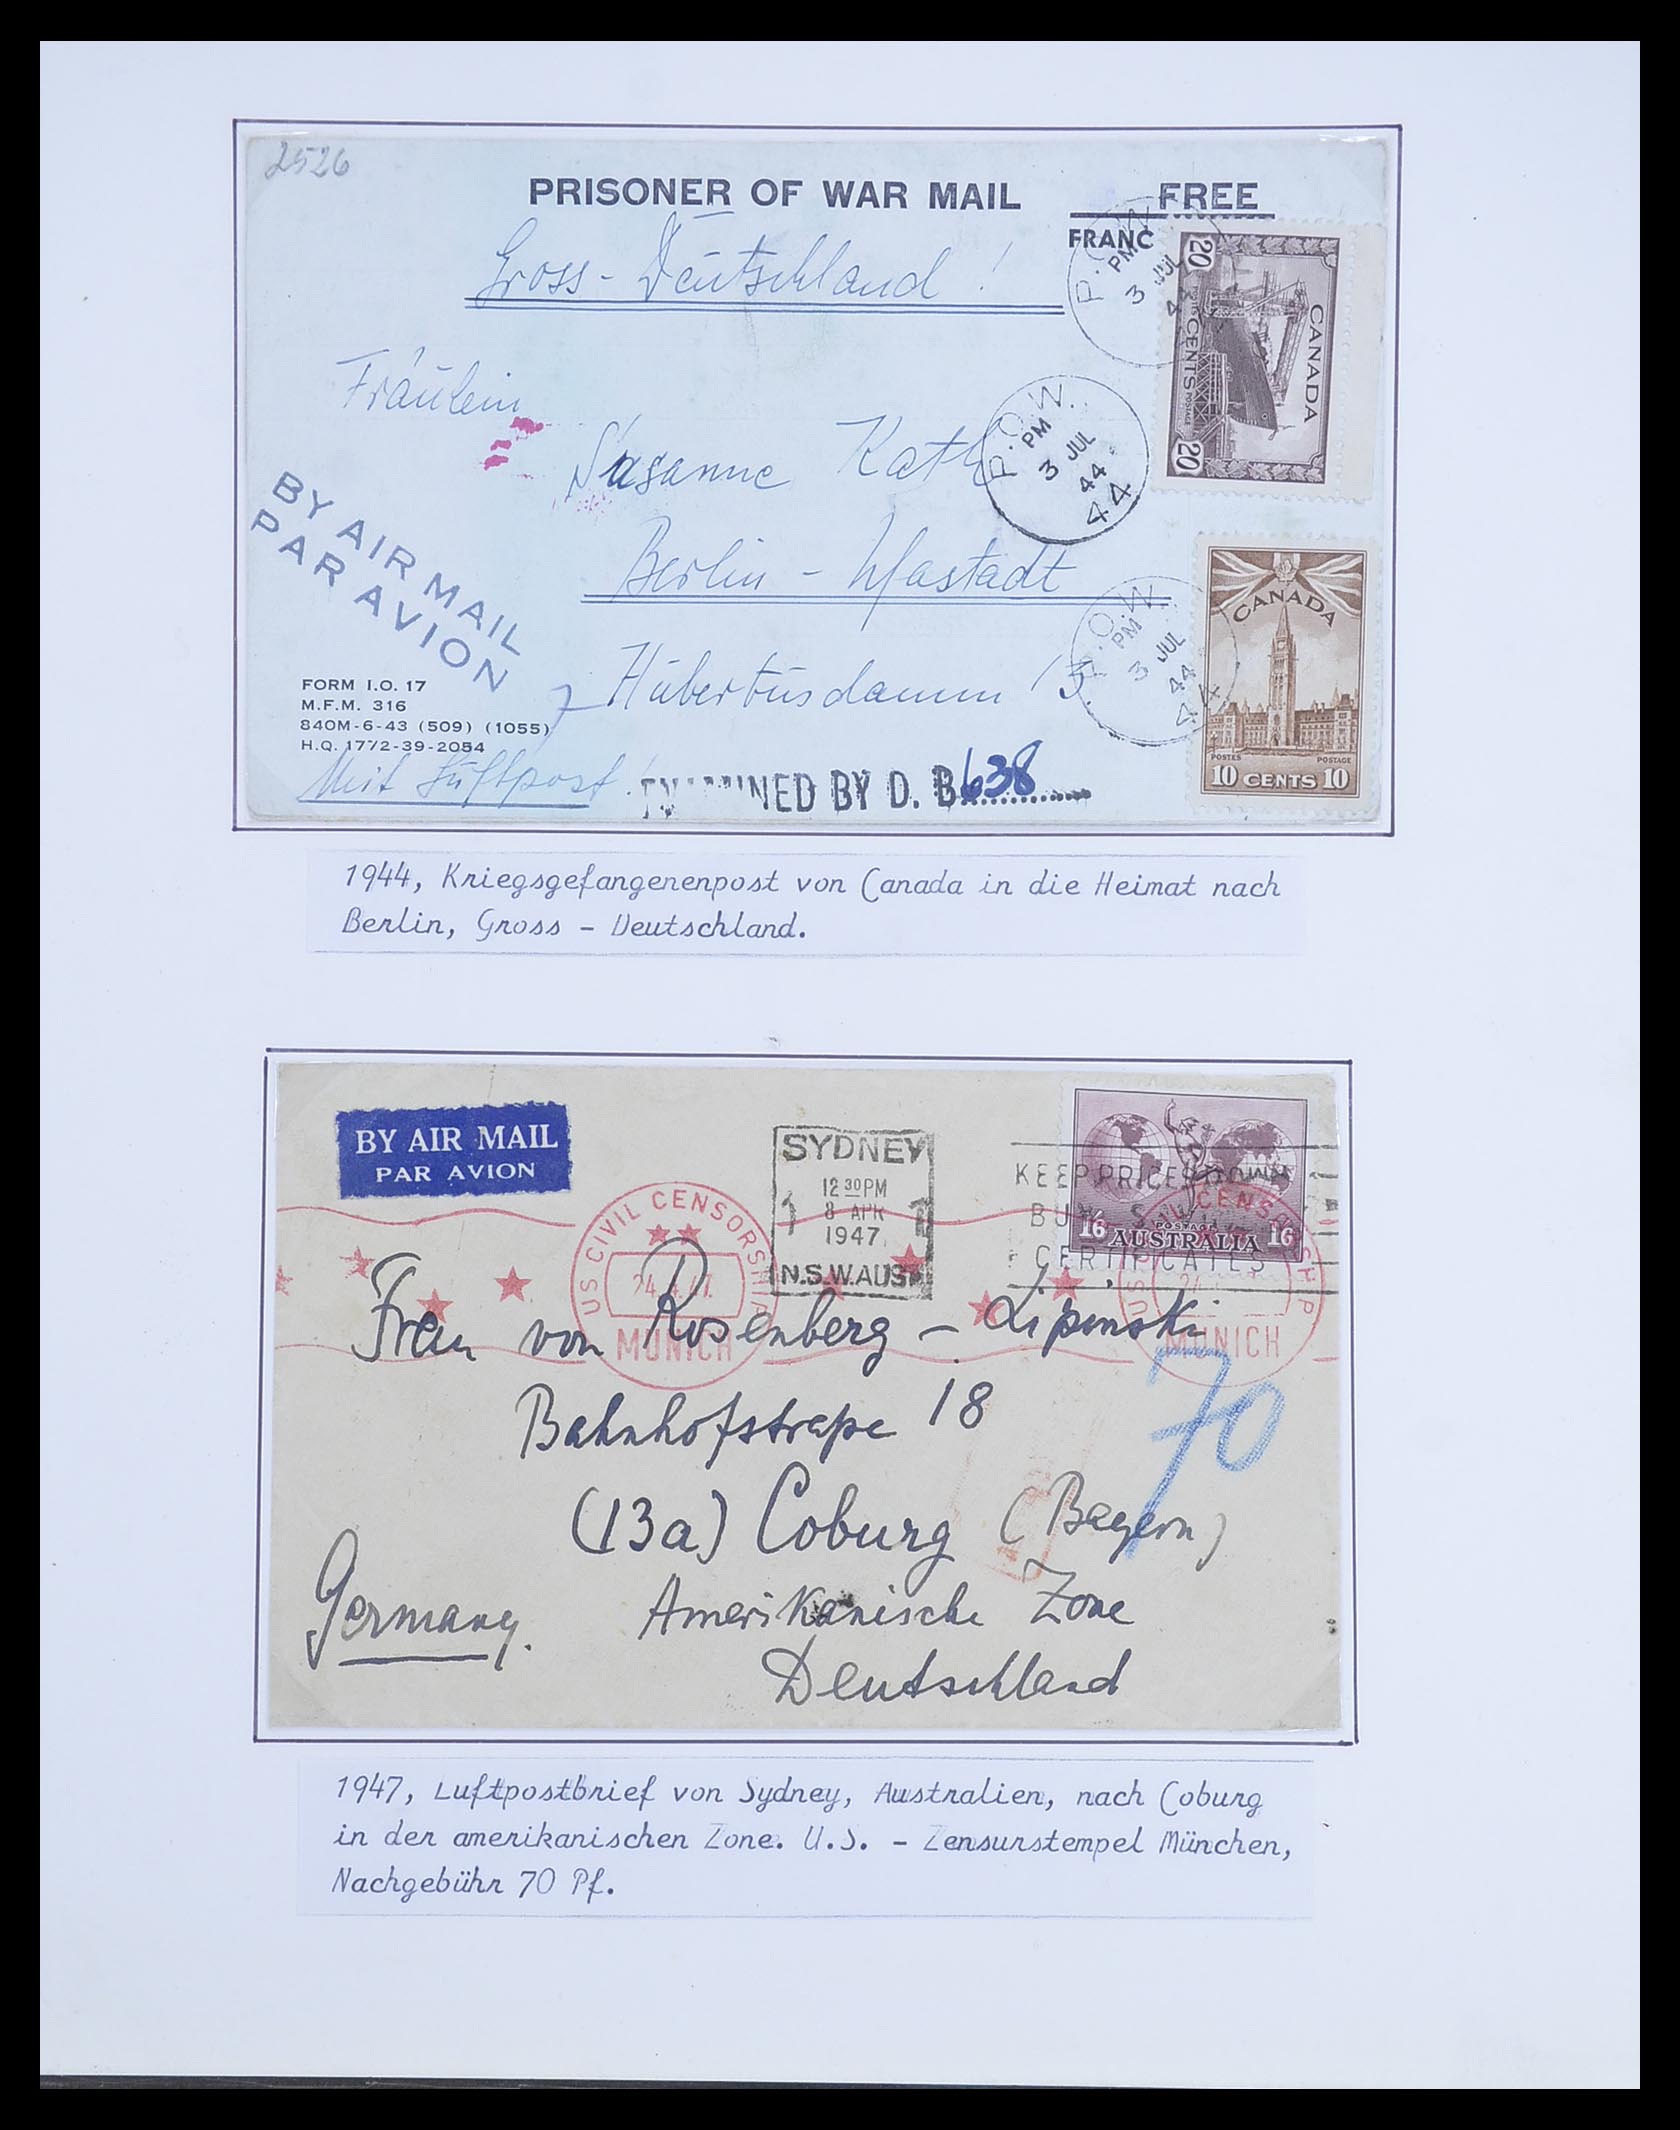 2526
PRISONER OF WAR MAIL FREE
FRANC
Gross-Deutschland!
P.O.W.
PM
3 JUL
44
CANADA
20 CENTS 20
POSTAGE
Fräulein
Susanne Kath
P.O.W.
PM
3 JUL
44
44
BY AIR MAIL
PAR AVION
Berlin -
CANADA
P.O.W.
PM
3 JUL
44
44
Hubertusdamm 13.
FORM I.O. 17
M.F.M. 316
840M-6-43 (509) (1055)
H.Q. 1772-39-2054
POSTES POSTAGE
10 CENTS 10
Mit Luftpost!
EXAMINED BY D. B 638
1944, Kriegsgefangenenpost von Canada in die Heimat nach
Berlin, Gross - Deutschland.
BY AIR MAIL
PAR AVION
SYDNEY
12 30 PM
8 APR
1947
N.S.W. AUST
KEEP PRICES DOWN
BUY SAVINGS
CERTIFICATES
1/6 POSTAGE 1/6
AUSTRALIA
US CIVIL CENSORSHIP
24.4.47.
MUNICH
US CIVIL CENSORSHIP
MUNICH
Frau von Rosenberg - Lipinski
70
Bahnhofstraße 18
(13a) Coburg (Bayern)
Germany. Amerikanische Zone
Deutschland
1947, Luftpostbrief von Sydney, Australien, nach Coburg
in der amerikanischen Zone. U.S. - Zensurstempel München,
Nachgebühr 70 Pf.